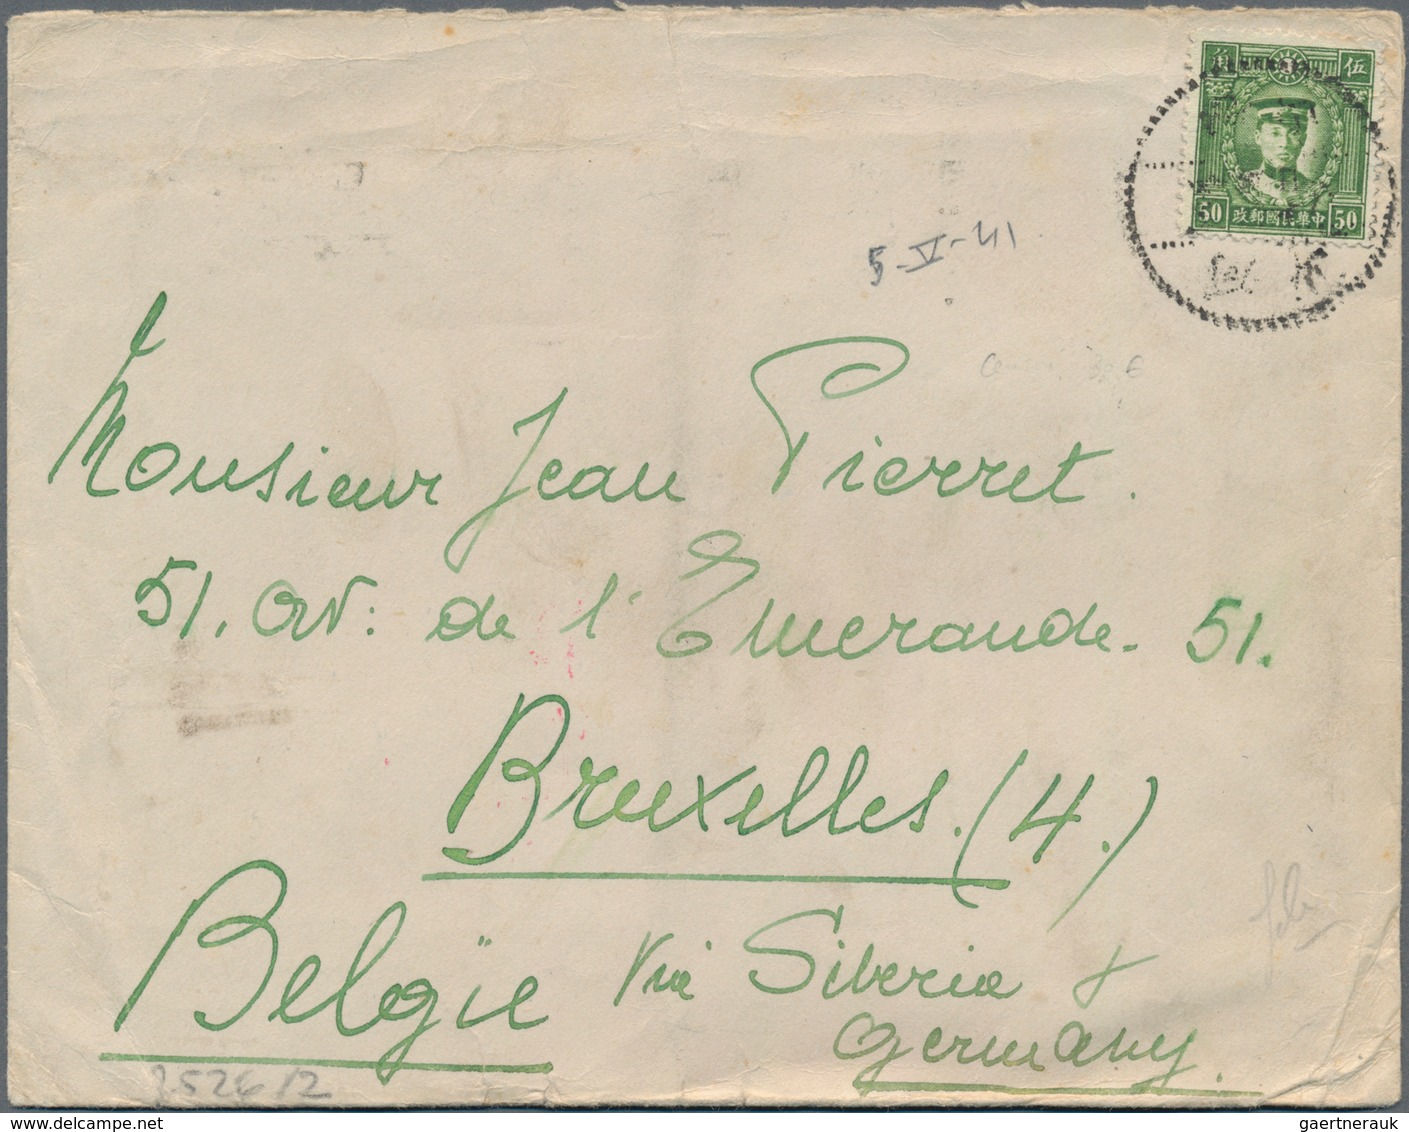 角 伍
50 政郵國民華中 50
5-V-41
Monsieur Jean Pierret.
51. av: de l'Emeraude. 51.
Bruxelles. (4.)
België via Siberia &
Germany.
2526/2
gaertnerauk